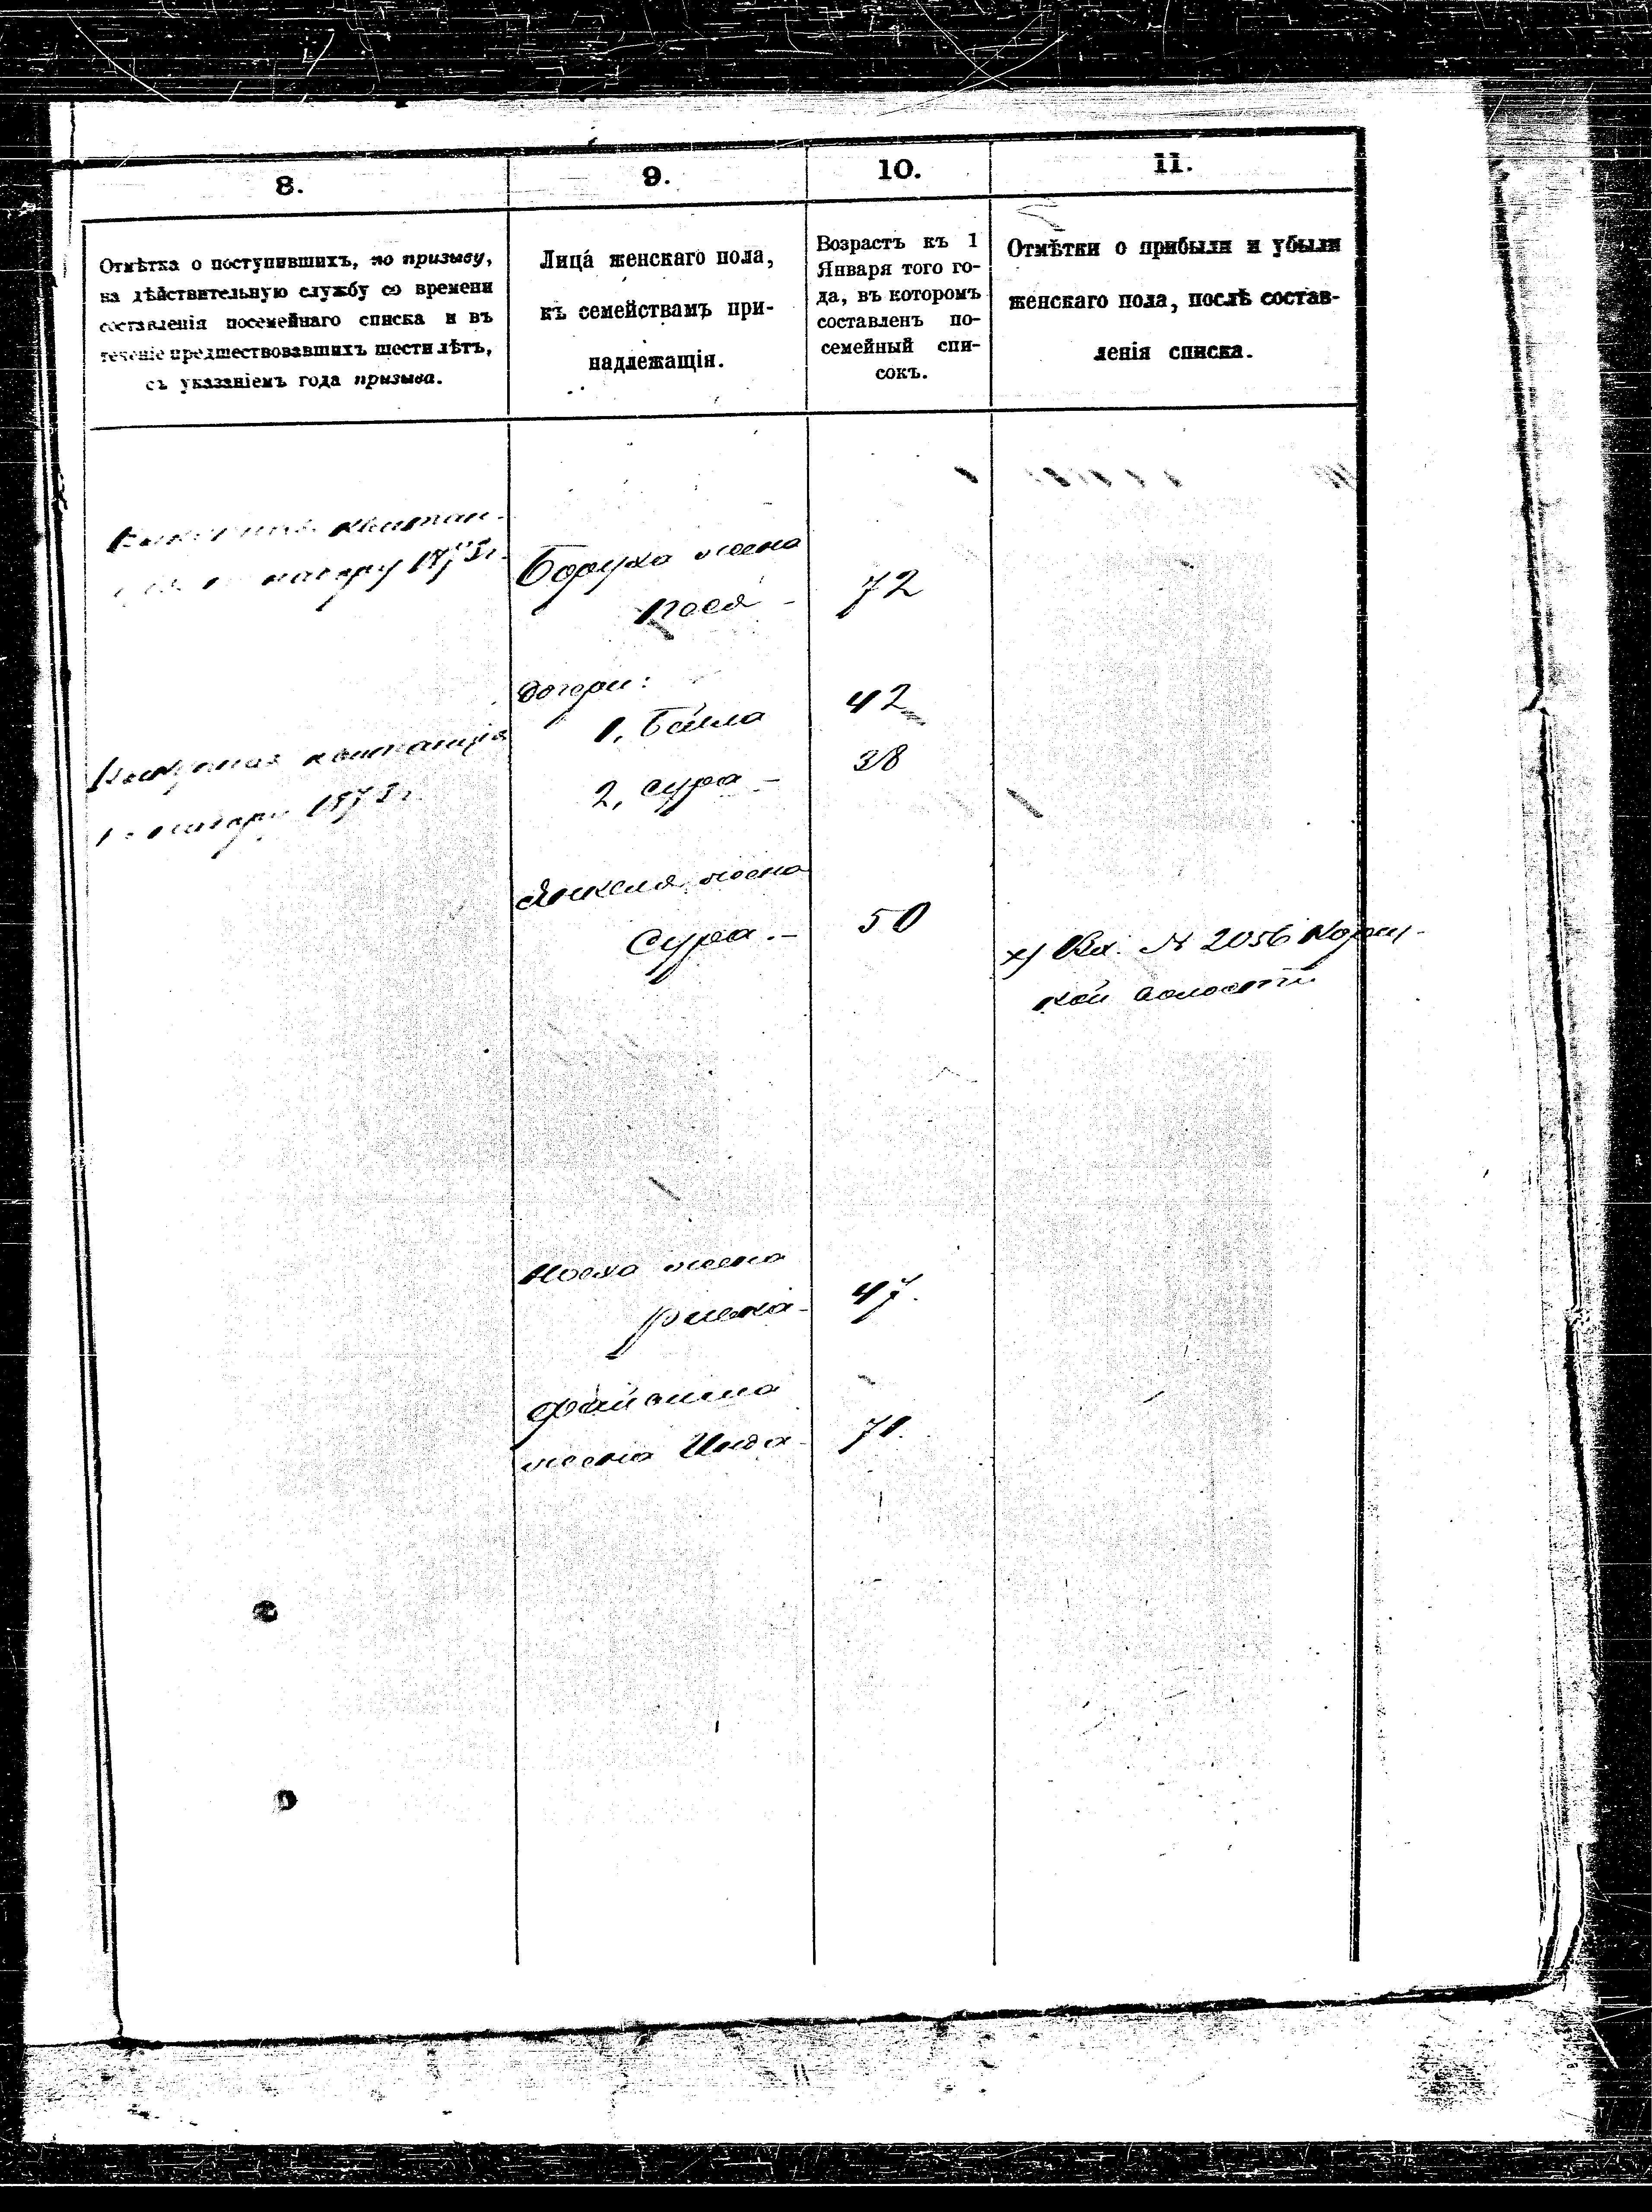 8.
9.
10.
11.
Отмѣтка о поступившихъ, по призыву,
на дѣйствительную службу со времени
составленія посемейнаго списка и въ
теченіе предшествовавшихъ шести лѣтъ,
съ указаніемъ года призыва.
Лица женскаго пола,
къ семействамъ при-
надлежащія.
Возрастъ къ 1
Января того го-
да, въ которомъ
составленъ по-
семейный спи-
сокъ.
Отмѣтки о прибыли и убыли
женскаго пола, послѣ состав-
ленія списка.
квитан-
Боруха жена
72
дочери:
1, Бейла
42
квитанція
2, Сура -
38
Янкеля жена
Сура. -
50
х) № 2056
кой волости
жена
Ривка -
47.
жена